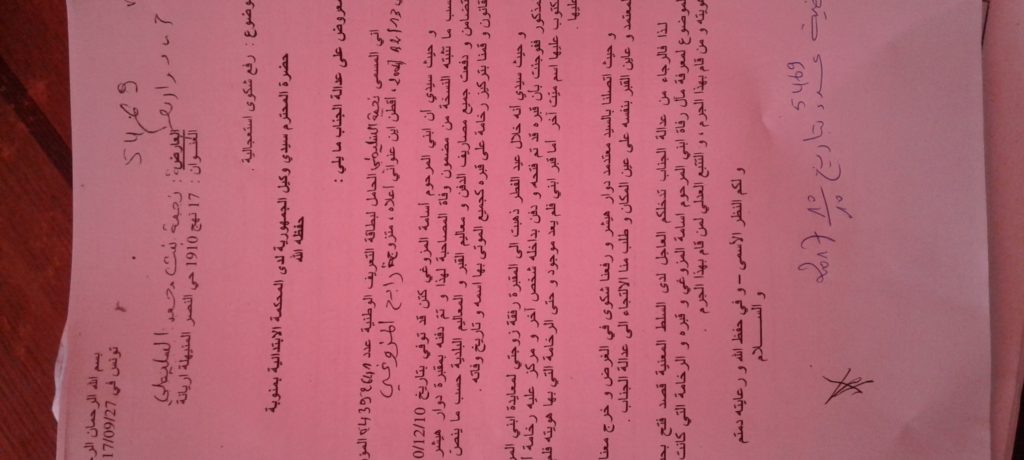 بسم الله الرحمان الر
تونس في 17/09/27
العارض: نجمة بنت محمد السليطي
العنوان : 17 نهج 1910 حي النصر المنيهلة اريانة
5469
الموضوع : رفع شكوى استعجالية
حضرة المحترم سيدي وكيل الجمهورية لدى المحكمة الابتدائية بمنوبة
حفظه الله
المعروض على عدالة الجناب ما يلي :
اني المسمى نجمة السليطي الحامل لبطاقة التعريف الوطنية عدد
، أقطن ابن عنواني أعلاه ، متزوجة رابح المزوغي
و حيث سيدي ان ابني المرحوم أسامة المزوغي كان قد توفي بتاريخ 0/12/10
حسب ما تثبته النسخة من مضمون وفاة المصاحبة لهذا و تم دفنه بمقبرة دوار هيشر
بالتضامن و دفعت جميع مصاريف الدفن و معاليم القبر و المعاليم البلدية حسب ما ينص
القانون و قمنا بتركيز رخامة على قبره كجميع الموتى بها اسمه و تاريخ وفاته.
و حيث سيدي أنه خلال عيد الفطر ذهبت الى المقبرة رفقة زوجتي لمعايدة ابني المر
المذكور ففوجئت بأن قبره قد تم فتحه و دفن بداخله شخص آخر و مركز عليه رخامة أ
مكتوب عليها اسم ميت آخر أما قبر ابني فلم يعد موجود و حتى الرخامة التي بها هويته فلم
عليها
و حيث اتصلنا بالسيد معتمد دوار هيشر و رفعنا شكوى في الغرض و خرج معنا
المعتمد و عاين القبر بنفسه على عين المكان و طلب منا الالتجاء الى عدالة الجناب.
لذا فالرجاء من عدالة الجناب تدخلكم العاجل لدى السلط المعنية قصد فتح بحث
الموضوع لمعرفة مآل رفاة ابني المرحوم أسامة المزوغي و قبره و الرخامة التي كانت
هويته و من قام بهذا الجرم ، و التتبع العدلي لمن قام بهذا الجرم.
و لكم النظر الأسمى – و في حفظ الله و رعايته دمتم
و الســـــلام
عدد 5469
بتاريخ 10/10 2017